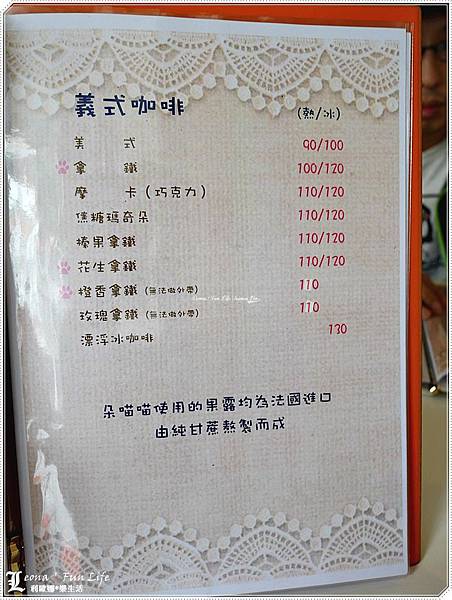 義式咖啡 (熱/冰)
美 式 90/100
拿 鐵 100/120
摩 卡(巧克力) 110/120
焦糖瑪奇朵 110/120
榛果拿鐵 110/120
花生拿鐵 110/120
橙香拿鐵(無法做外帶) 110
玫瑰拿鐵(無法做外帶) 110
漂浮冰咖啡 130
朵喵喵使用的果露均為法國進口
由純甘蔗熬製而成
Leona * Fun Life